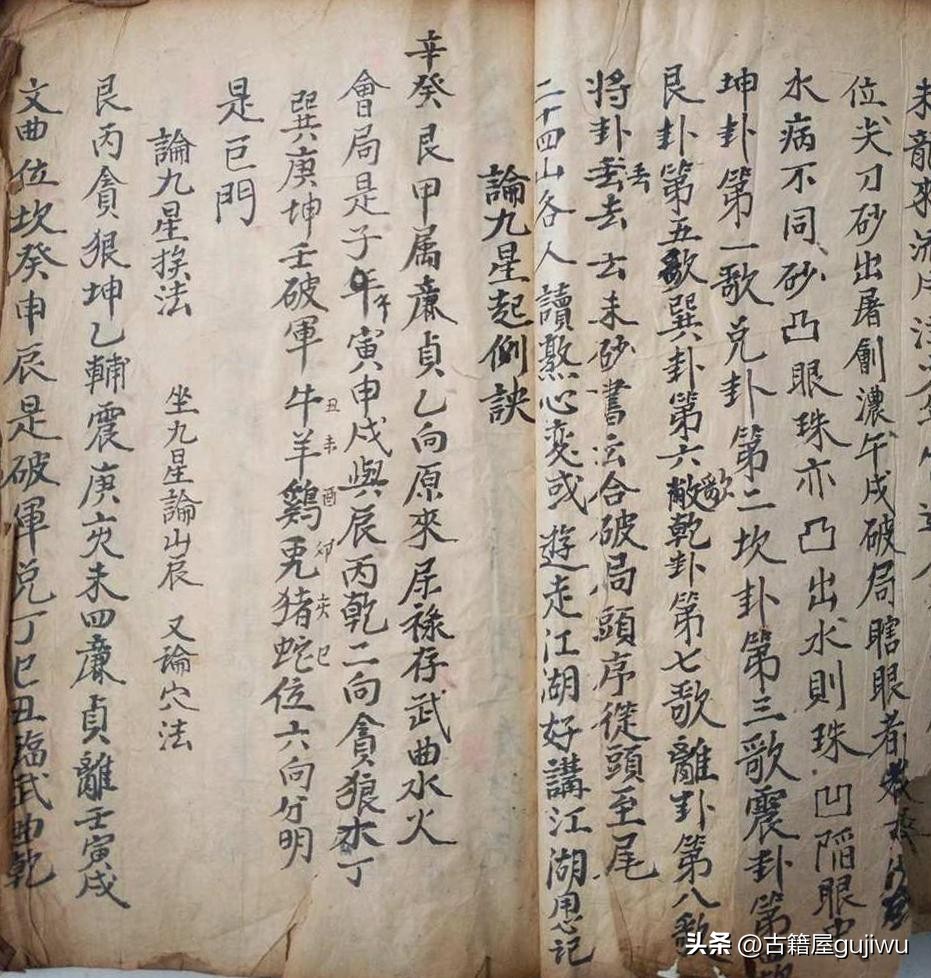 未龍來流
位尖刀砂出屠劊濃午戌破局瞎眼者
水病不同砂凸眼珠亦凸出水則珠凹陷眼
坤卦第一歌兑卦第二坎卦第三歌震卦第
艮卦第五歌巽卦第六歌乾卦第七歌離卦第八歌
將卦丢去去未砂書云合破局頭序從頭至尾
二十四山各人讀熟心変或遊走江湖好講江湖思記
論九星起例訣
辛癸艮甲属廉貞乙向原來尿祿存武曲水火
會局是子午寅申戌與辰丙乾二向貪狼木丁
巽庚坤壬破軍牛丑羊未鷄酉兎卯猪亥蛇巳位六向分明
是巨門
論九星挨法 坐九星論山辰 又論穴法
艮丙貪狠坤乙輔震庚亥未四廉貞離壬寅戌
文曲位坎癸申辰是破軍兑丁巳丑臨武曲乾
头条 @古籍屋gujiwu